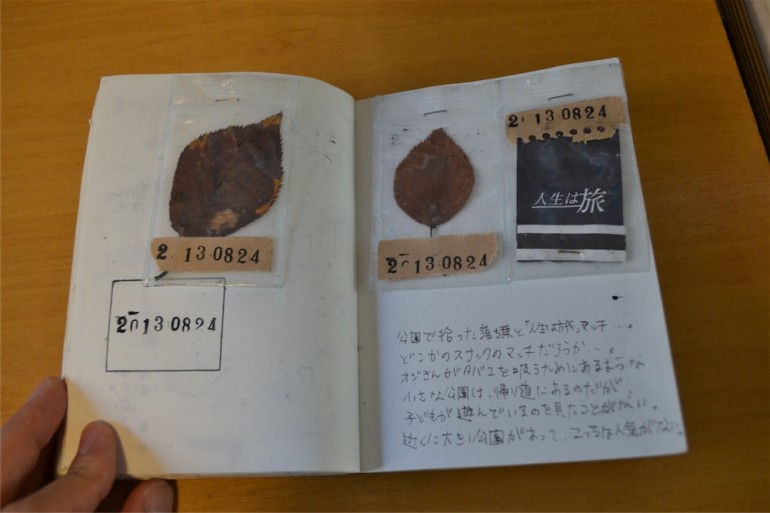 20130824
20130824
20130824
20130824
人生は旅
公園で拾った落ち葉と「人生は旅」マッチ…。
どこかのスナックのマッチだろうか…。
オジさんがタバコを吸うためにあるような
小さな公園は、帰り道にあるのだが、
子どもが遊んでいるのを見たことがない。
近くに大きい公園があって、こっちは人気がない。